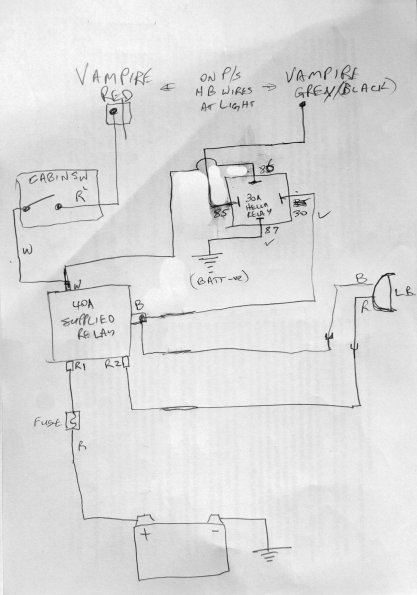 VAMPIRE
RED
ON P/S
HB WIRES
AT LIGHT
VAMPIRE
GREY(BLACK)
CABIN SW
R
86
30A
HELLA
RELAY
85
30
87
W
(BATT-VE)
W
40A
SUPPLIED
RELAY
B
B
R
LB
R1
R2
FUSE
R
+
-